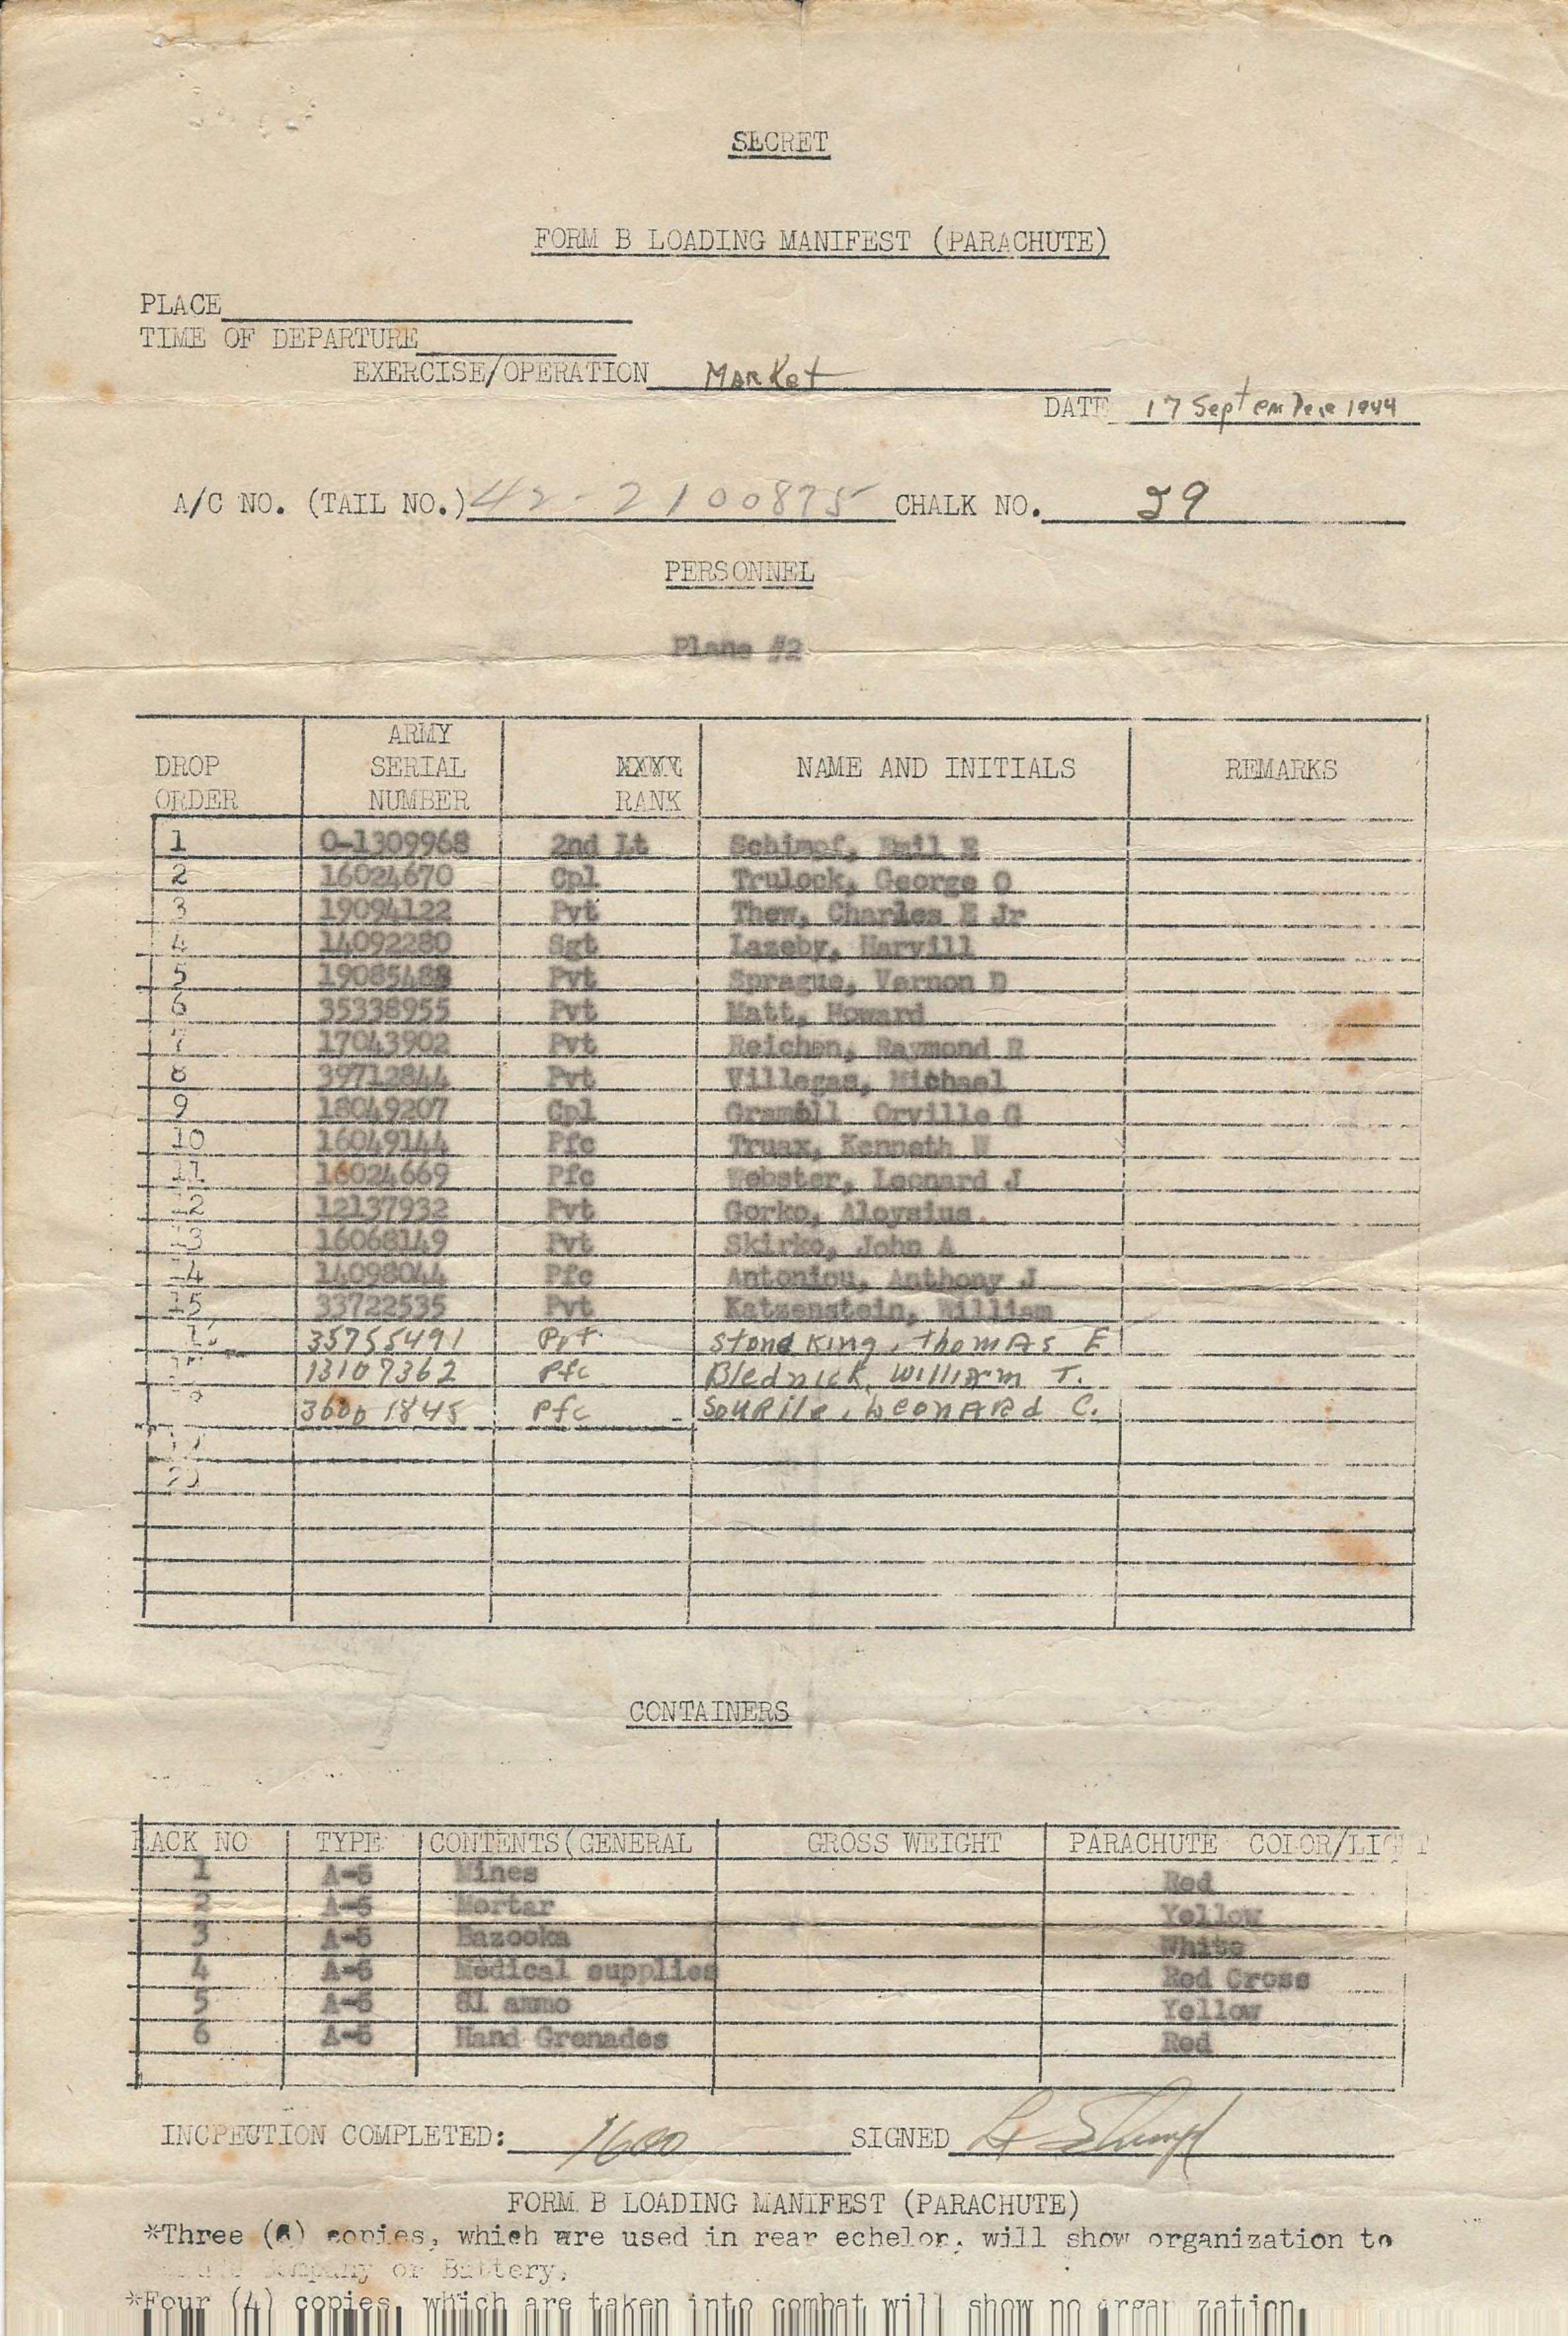 SECRET
FORM B LOADING MANIFEST (PARACHUTE)
PLACE
TIME OF DEPARTURE
EXERCISE/OPERATION Market
DATE 17 September 1944
A/C NO. (TAIL NO.) 42-2100875 CHALK NO. 29
PERSONNEL
Plane #2
DROP ORDER ARMY SERIAL NUMBER RANK NAME AND INITIALS REMARKS
1 0-1309968 2nd Lt Schimpf, Emil E
2 16024670 Cpl Trulock, George O
3 19094122 Pvt Thew, Charles E Jr
4 14092280 Sgt Lazeby, Harvill
5 19085488 Pvt Sprague, Vernon D
6 35338955 Pvt Matt, Howard
7 17043902 Pvt Reichen, Raymond R
8 39712844 Pvt Villegas, Michael
9 18049207 Cpl Orville G
10 16049144 Pfc Truax, Kenneth W
11 16024669 Pfc Webster, Leonard J
12 12137932 Pvt Gorko, Aloysius
13 16068149 Pvt Skirko, John A
14 14098044 Pfc Antoniou, Anthony J
15 33722535 Pvt Katzenstein, William
16 35755491 Pvt Stoneking, Thomas E
13107362 Pfc Blednick, William T.
36001845 Pfc Leonard C.
20
CONTAINERS
RACK NO TYPE CONTENTS(GENERAL GROSS WEIGHT PARACHUTE COLOR/LIGHT
1 A-5 Mines Red
2 A-5 Mortar Yellow
3 A-5 Bazooka White
4 A-5 Medical supplies Red Cross
5 A-5 81 ammo Yellow
6 A-5 Hand Grenades Red
INCPECTION COMPLETED: 1600 SIGNED
FORM B LOADING MANIFEST (PARACHUTE)
*Three copies, which are used in rear echelon, will show organization to
Company or Battery.
*Four (4) copies, which are taken into combat will show no organization.